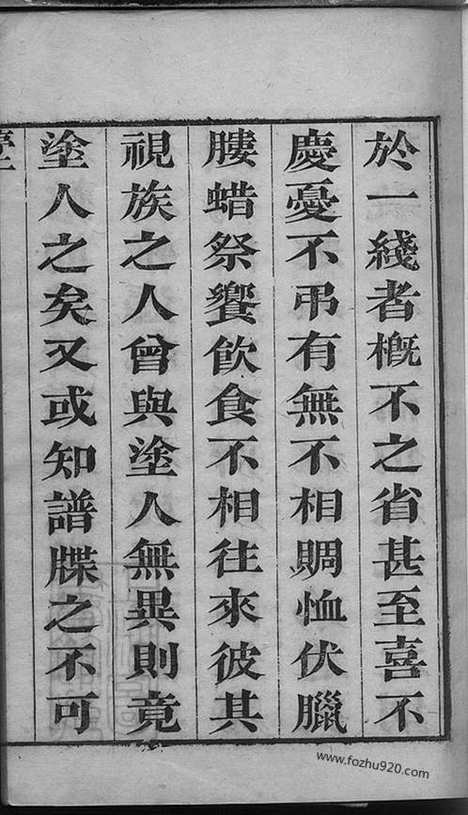 於一綫者槪不之省甚至喜不
慶憂不弔有無不相賙恤伏臘
膢蜡祭饗飲食不相往來彼其
視族之人曾與塗人無異則竟
塗人之矣又或知譜牒之不可
www.fozhu920.com